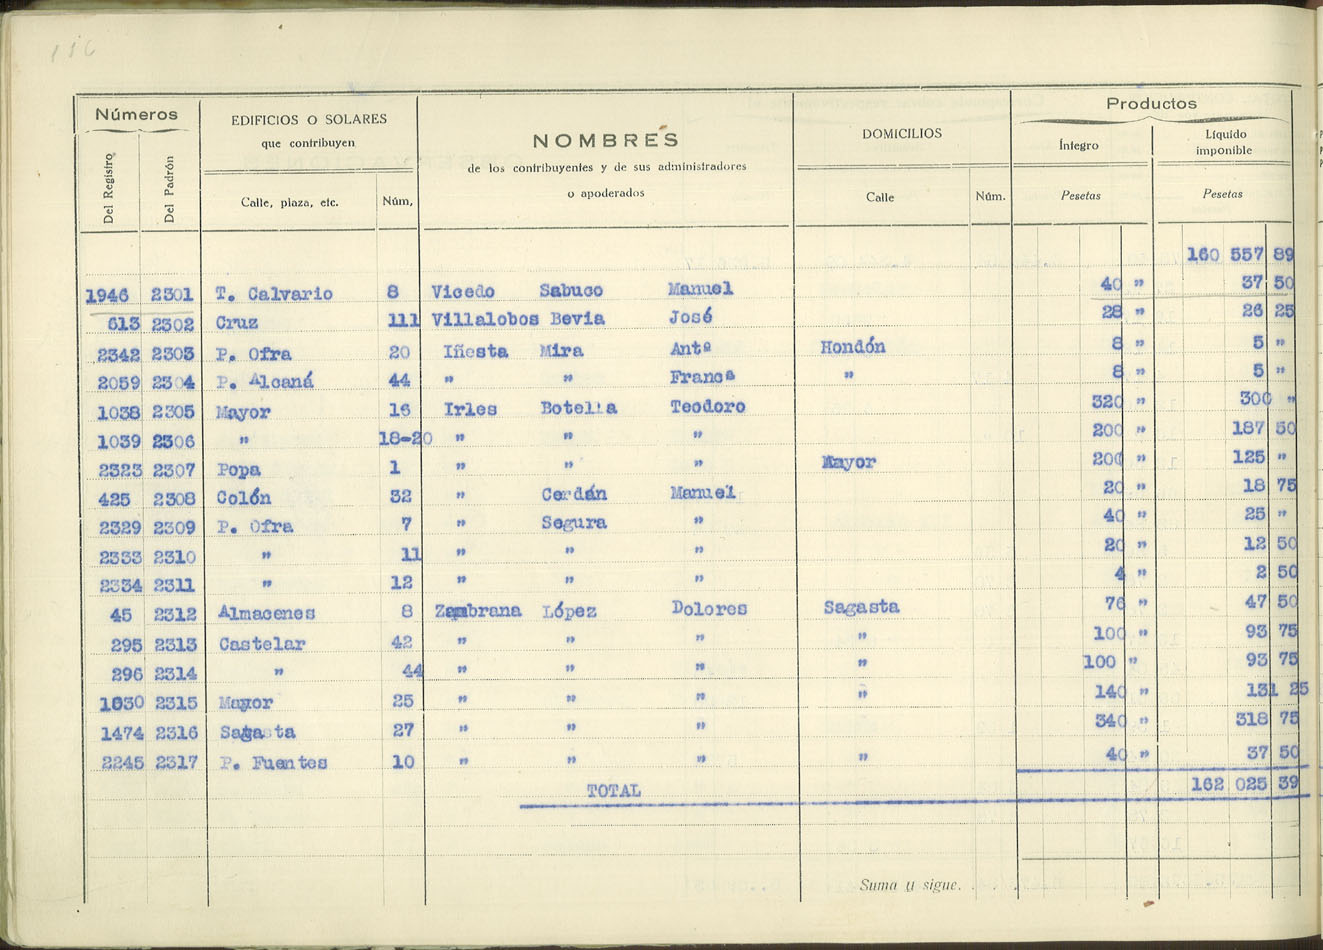 116
Números
EDIFICIOS O SOLARES
que contribuyen
NOMBRES
de los contribuyentes y de sus administradores
o apoderados
DOMICILIOS
Productos
Íntegro
Líquido
imponible
Del Registro
Del Padrón
Calle, plaza, etc.
Núm,
Calle
Núm.
Pesetas
Pesetas
160 557 89
1946 2301 T. Calvario 8 Vicedo Sabuco Manuel 40 " 37 50
613 2302 Cruz 111 Villalobos Bevia José 28 " 26 25
2342 2303 P. Ofra 20 Iñesta Mira Antª Hondón 8 " 5 "
2059 2304 P. Alcaná 44 " " Francª " 8 " 5 "
1038 2305 Mayor 16 Irles Botella Teodoro 320 " 300 "
1039 2306 " 18-20 " " " 200 " 187 50
2323 2307 Popa 1 " " " Mayor 200 " 125 "
425 2308 Colón 32 " Cerdán Manuel 20 " 18 75
2329 2309 P. Ofra 7 " Segura " 40 " 25 "
2333 2310 " 11 " " " 20 " 12 50
2334 2311 " 12 " " " 4 " 2 50
45 2312 Almacenes 8 Zambrana López Dolores Sagasta 76 " 47 50
295 2313 Castelar 42 " " " " 100 " 93 75
296 2314 " 44 " " " " 100 " 93 75
1030 2315 Mayor 25 " " " " 140 " 131 25
1474 2316 Sagasta 27 " " " 340 " 318 75
2245 2317 P. Fuentes 10 " " " " 40 " 37 50
TOTAL 162 025 39
Suma y sigue.